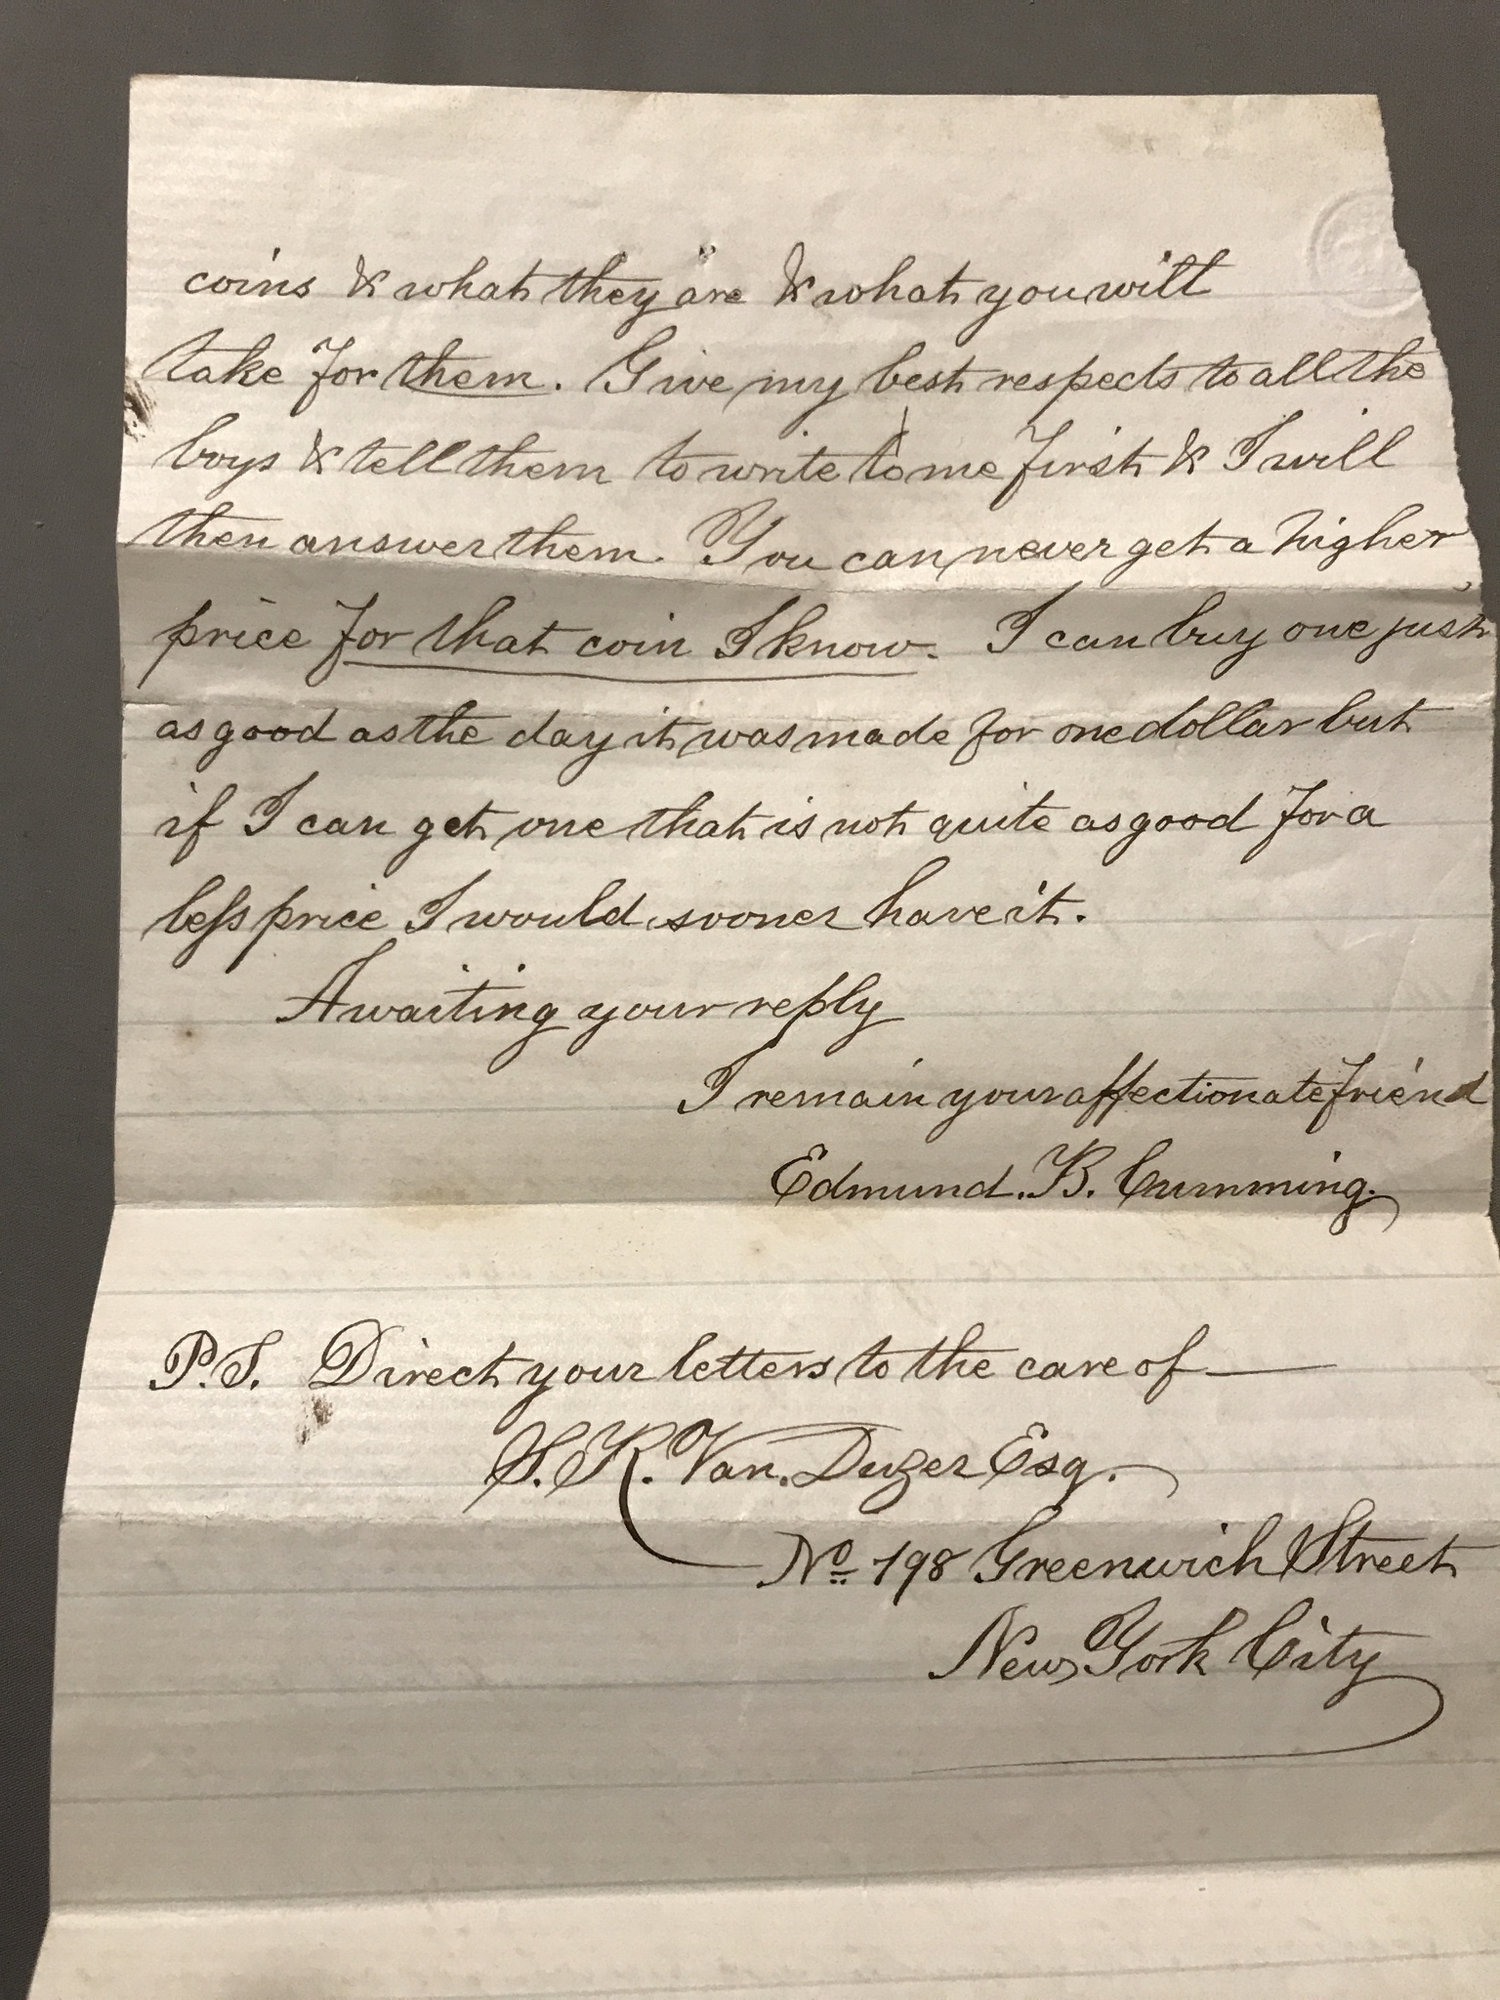 coins & what they are & what you will
take for them. Give my best respects to all the
boys & tell them to write to me first & I will
then answer them. You can never get a higher
price for that coin I know. I can buy one just
as good as the day it was made for one dollar but
if I can get one that is not quite as good for a
leſs price I would sooner have it.
Awaiting your reply
I remain your affectionate friend
Edmund. B. Cumming.
P.S. Direct your letters to the care of —
S. R. Van. Duzer Esq.
No. 198 Greenwich Street
New York City